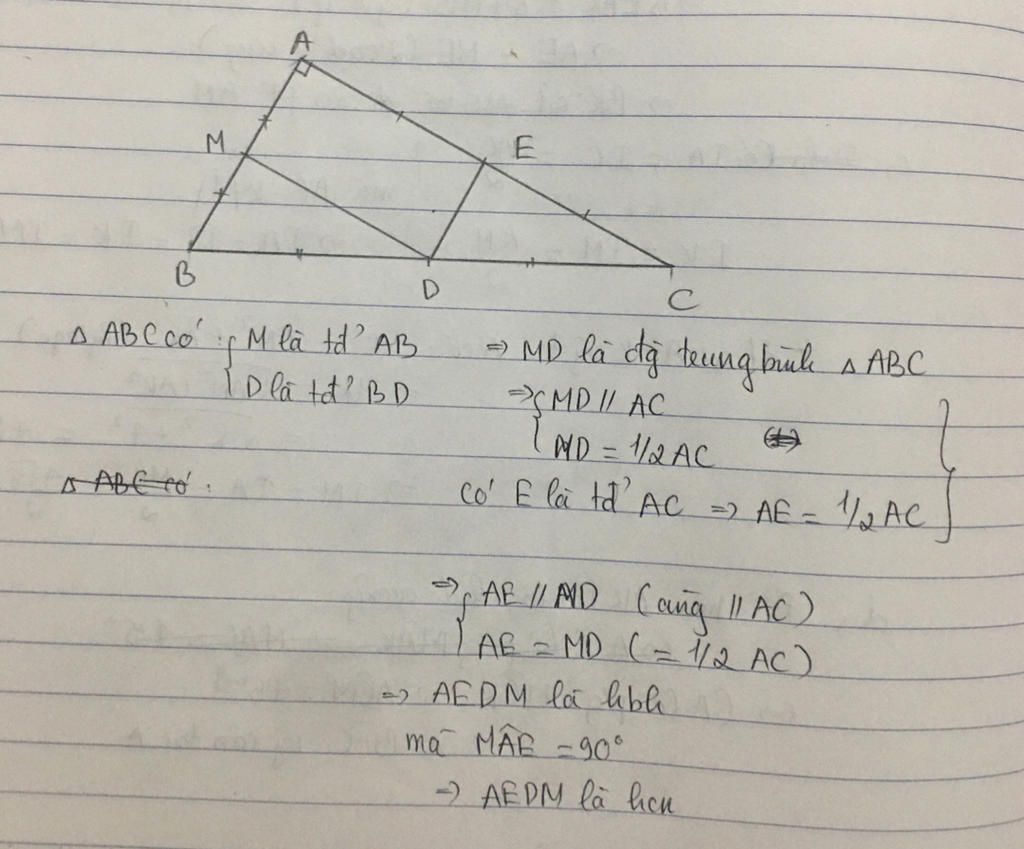 A
M
E
B
D
C
Δ ABC có : { M là tđ' AB ⇒ MD là đg trung bình Δ ABC
D là tđ' BD ⇒ { MD // AC
MD = 1/2 AC
Δ ABC có :
có E là tđ' AC ⇒ AE = 1/2 AC }
⇒ { AE // MD (cùng // AC)
AE = MD (= 1/2 AC)
⇒ AEDM là hbh
mà MÂE = 90°
⇒ AEDM là hcn